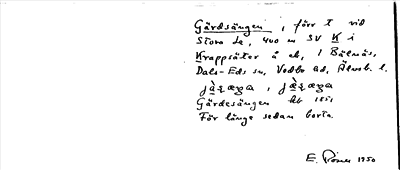 Gärdsängen, förr t vid
Stora Le, 400 m SV K i
Krappsäter å ek, 1 Bälnäs,
Dals-Eds sn, Vedbo hd, Älvsb. l.
Gärdesängen 1851
För länge sedan borta.
E. 1950